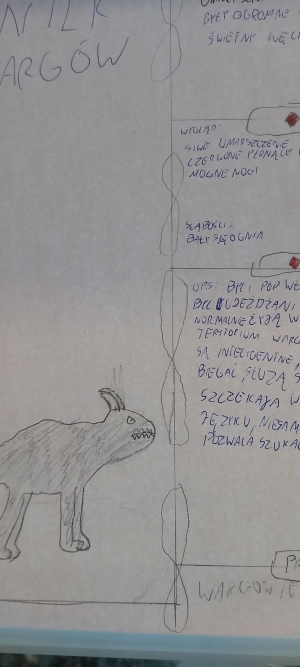 WILK
ARGÓW
BYŁY OGROMNE
ŚWIETNY WĘCH
WYGLĄD:
SIWE UMASZCZENIE
CZERWONE PŁONĄCE
MOCNE NOGI
SŁABOŚCI:
BAŁY SIĘ OGNIA
OPIS: BYLI POD
BYĆ UJEŻDŻANI
NORMALNE ŻYJĄ W
TERYTORIUM WARG
SĄ INTELIGENTNE,
BIEGAĆ, SŁUŻĄ
SZCZEKAJĄ W
JĘZYKU, NIESAM
POZWALA SZUKA
WARGOWI